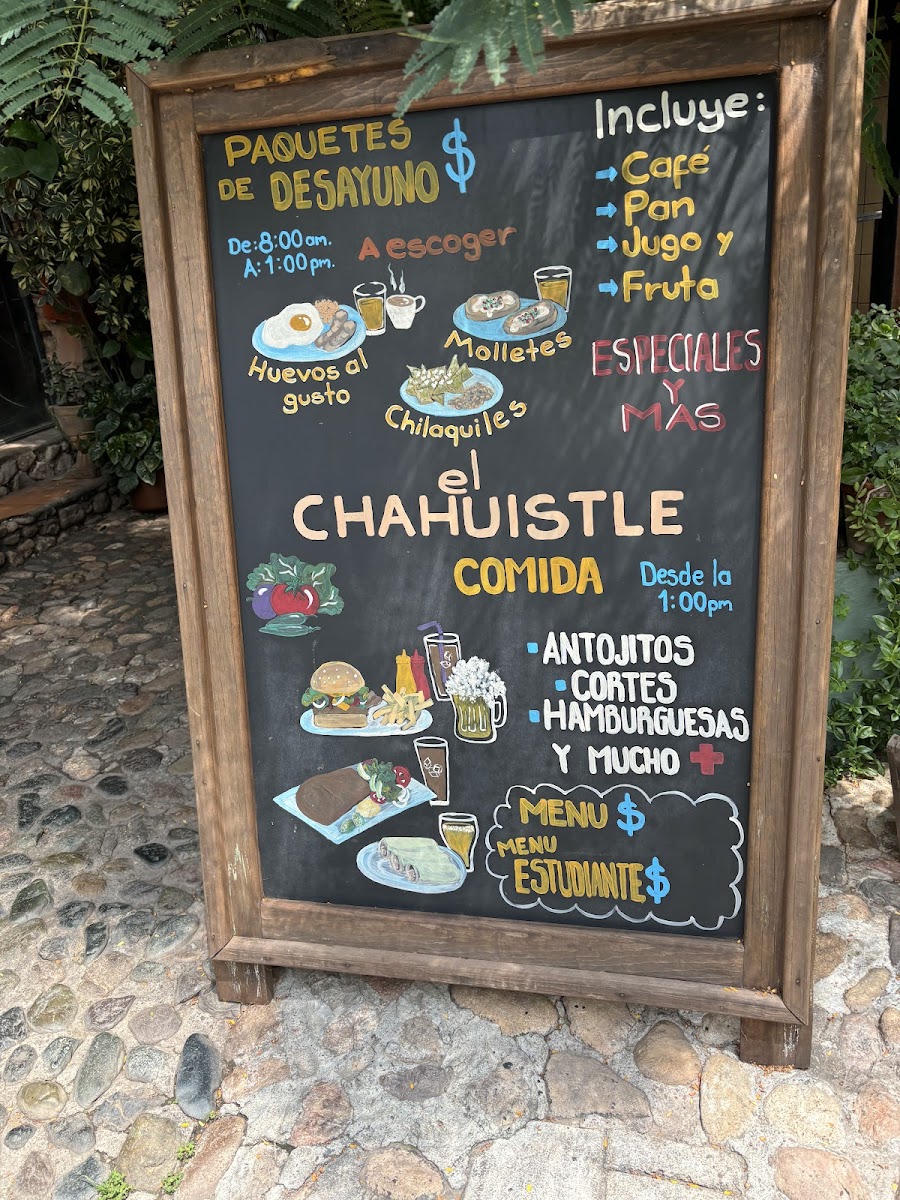 PAQUETES
DE DESAYUNO $
De: 8:00 am.
A: 1:00 pm.
A escoger
Huevos al
gusto
Molletes
Chilaquiles
Incluye:
Café
Pan
Jugo y
Fruta
ESPECIALES
Y
MAS
el
CHAHUISTLE
COMIDA
Desde la
1:00pm
ANTOJITOS
CORTES
HAMBURGUESAS
Y MUCHO +
MENU $
MENU
ESTUDIANTE $